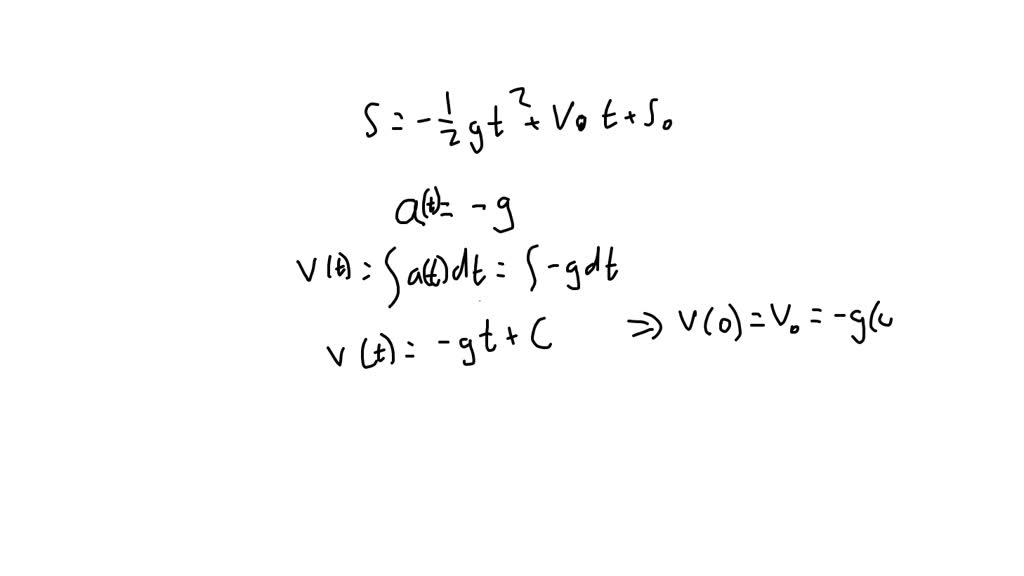 S = -1/2 gt² + V₀ t + S₀
a(t) = -g
v(t) = ∫a(t)dt = ∫-gdt
v(t) = -gt + C ⇒ v(0) = V₀ = -g(